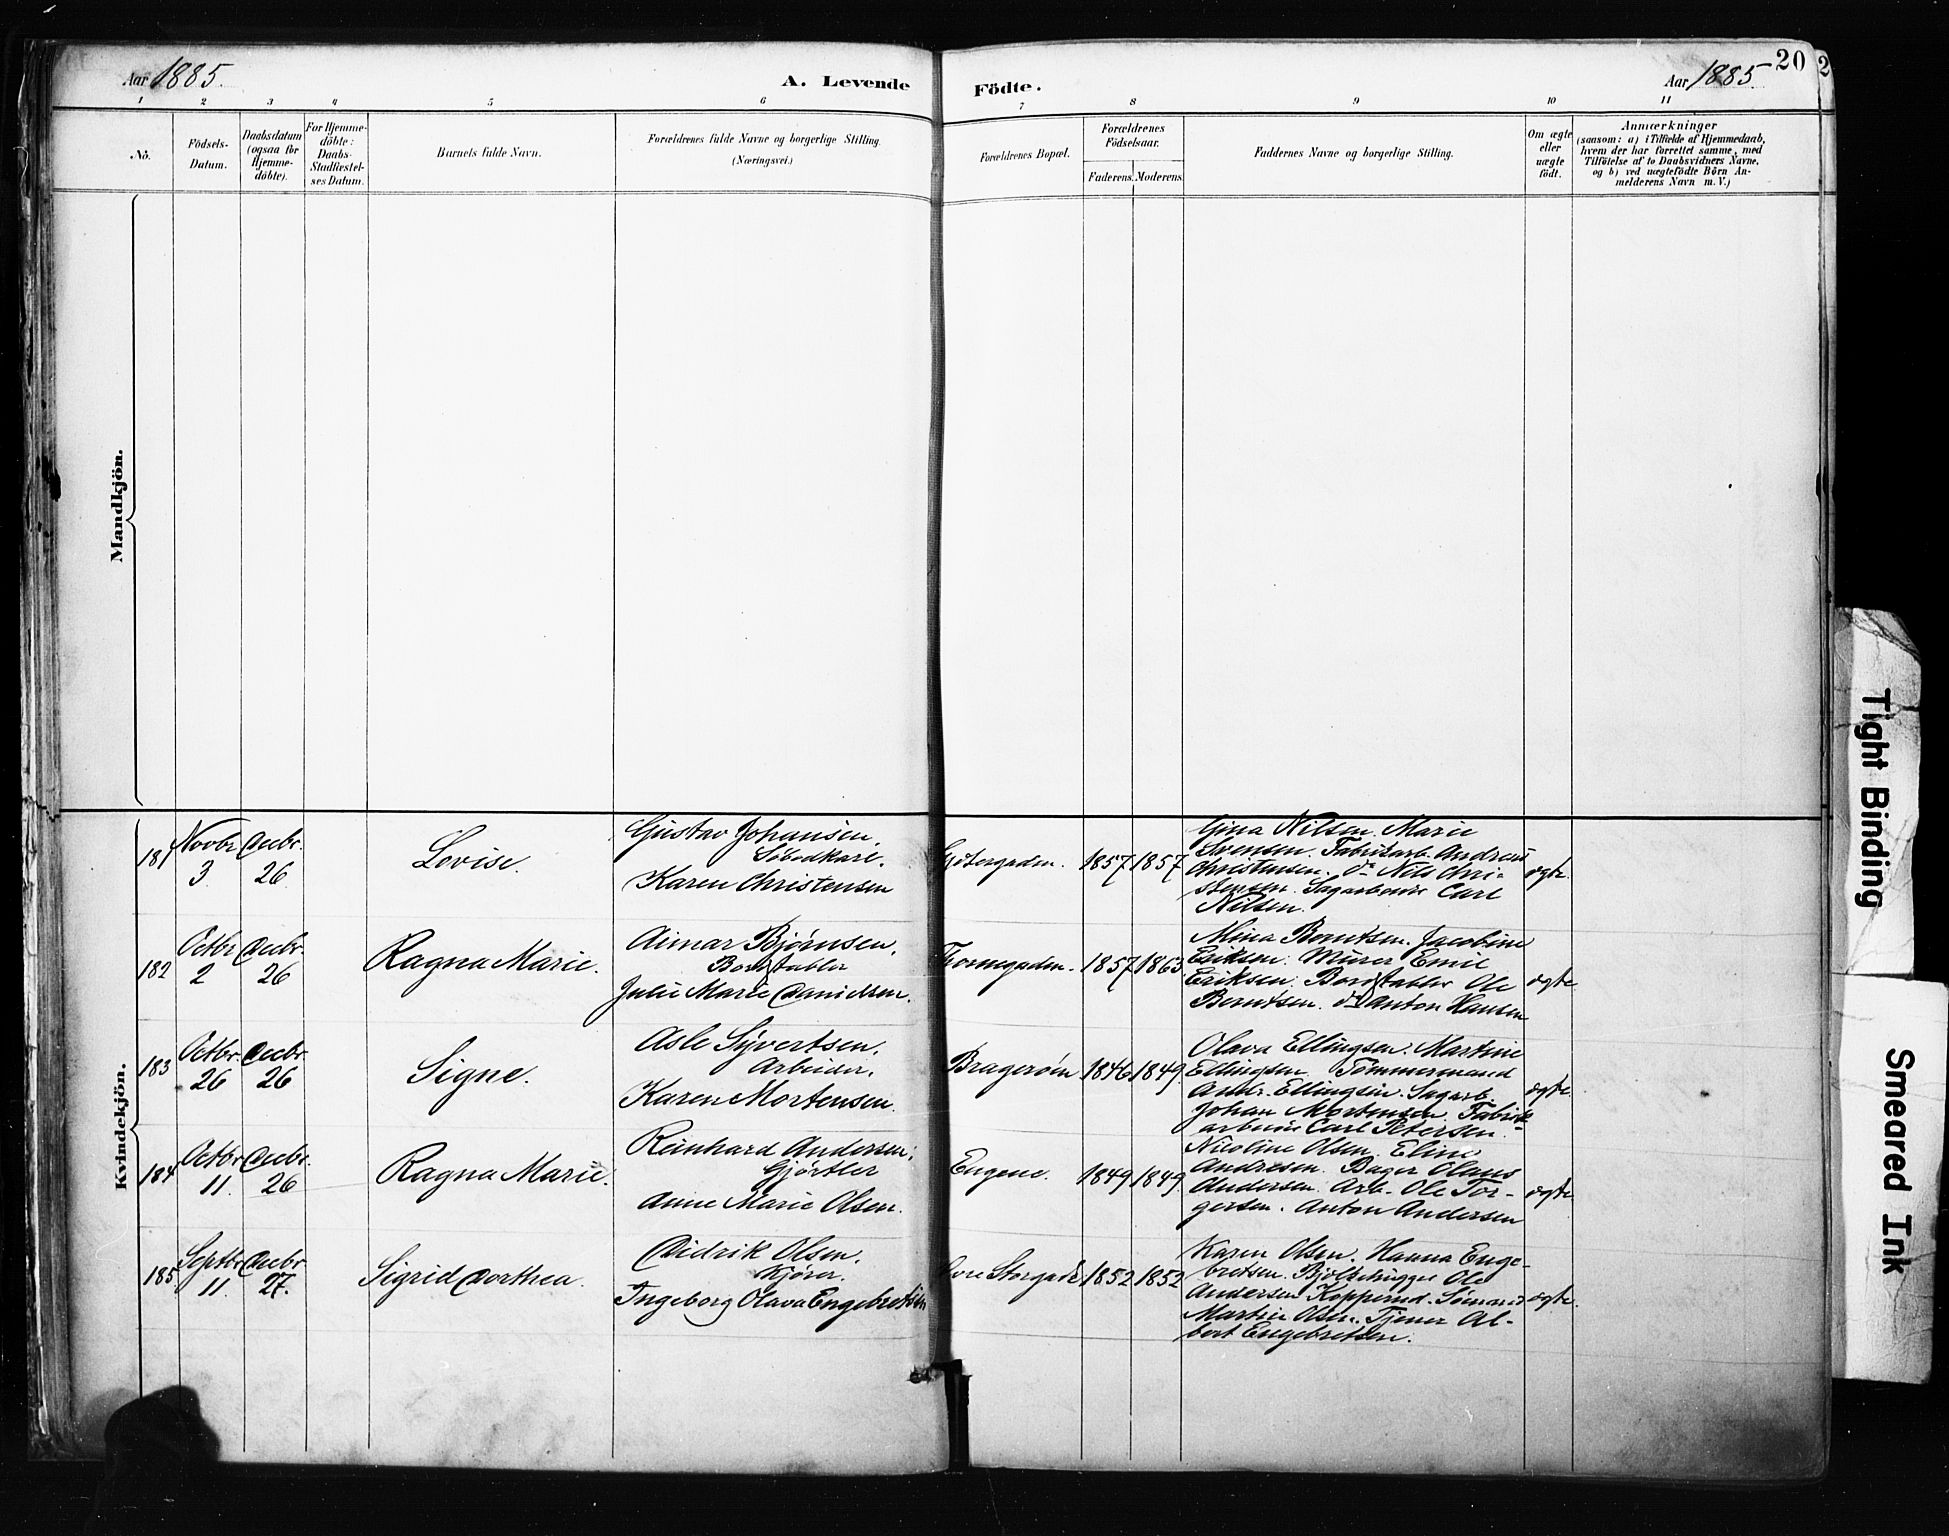 Aar 1885. A. Levende Födte. Aar 1885 20
1 2 3 4 5 6 7 8 9 10 11
Nô.
Födsels-
Datum.
Daabsdatum
(ogsaa for
Hjemme-
döbte).
For Hjemme-
döbte:
Daabs-
Stadfæstel-
ses Datum.
Barnets fulde Navn.
Forældrenes fulde Navne og borgerlige Stilling.
(Næringsvei.)
Forældrenes Bopæl.
Forældrenes
Födselsaar.
Faderens. Moderens.
Faddernes Navne og borgerlige Stilling.
Om ægte
eller
uægte
födt.
Anmærkninger
(saasom: a) i Tilfælde af Hjemmedaab,
hvem der har forrettet samme, med
Tilföielse af to Daabsvidners Navne,
og b) ved uægtefödte Börn An-
melderens Navn m. V.)
Mandkjön.
Kvindekjön.
181
Novbr
3
Decbr.
26
Lovise.
Gustav Johansen,
Karen Christensen
1857
1857
Gina Nilsen. Marie
Svensen. Fabrikarb. Andreas
Christensen. do Nils Chri-
stensen. Sagarbeider Carl
Nilsen.
ægte.
182
Octbr
2
Decbr.
26
Ragna Marie.
Aimar Bjørnsen,
Bordstabler
Julie Marie Danielsen.
Tornegaden.
1857
1863
Mina Berntsen. Jacobine
Eriksen. Murer Emil
Eriksen. Bordstabler Ole
Berntsen. do Anton Hansen
ægte
183
Octbr.
26
Decbr.
26
Signe.
Asle Syvertsen,
Arbeider.
Karen Mortensen.
Bragerøen
1846
1849
Olava Ellingsen. Martine
Ellingsen. Tømmermand
Andr. Ellingsen. Sagarb.
Johan Mortensen. Fabrik-
arbeider Carl Petersen.
ægte
184
Octbr
11.
Decbr.
26
Ragna Marie.
Reinhard Andersen,
Gjørtler
Anne Marie Olsen.
Engene.
1849
1849
Nicoline Olsen. Eline
Andresen. Bager Olaus
Andersen. Arb. Ole Tor-
gersen. Anton Andersen
ægte
185
Septbr
11.
Decbr.
27.
Sigrid Dorthea.
Didrik Olsen,
Kjører.
Ingeborg Olava Engebretsen
Øvre Storgade
1852
1852
Karen Olsen. Hanna Enge-
bretsen. Bjelkehugger Ole
Andersen Kopperud. Sømand
Martin Olsen. Tjener Al-
bert Engebretsen.
ægte.
Tight Binding
Smeared Ink